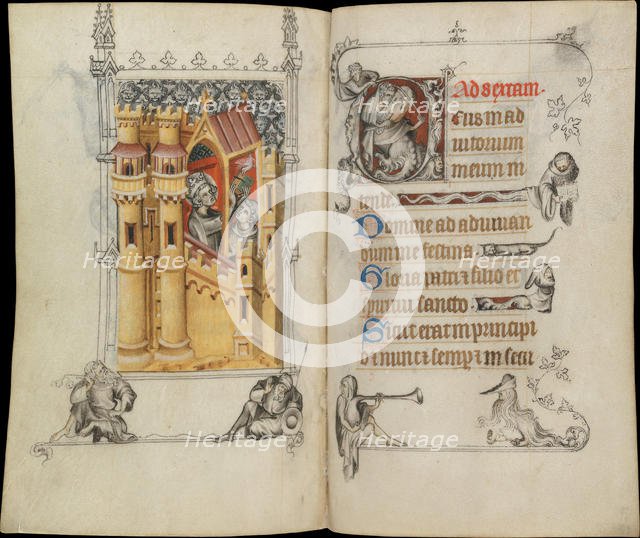 Ad sextam.
Deus in ad
iutorium
meum in
tende.
Domine ad adiuuan
dum me festina
Gloria patri et filio et
spiritui sancto
Sicut erat in principi
o et nunc et semper et in secu
Heritage
Heritage
Heritage
Heritage
Heritage
Heritage
Heritage
Heritage
Heritage
Heritage
©